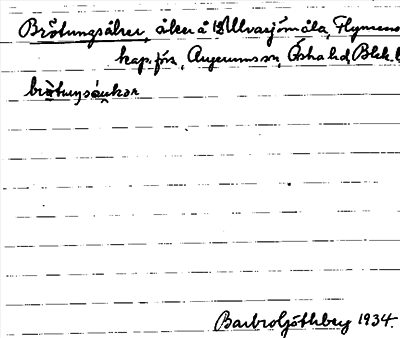 Brötungsåker, åker å Ulvasjömåla, Flymens
kap. förs, Augerums sn, Östra hd, Blek. l
brötungsåukər
Barbro Göthberg 1934.